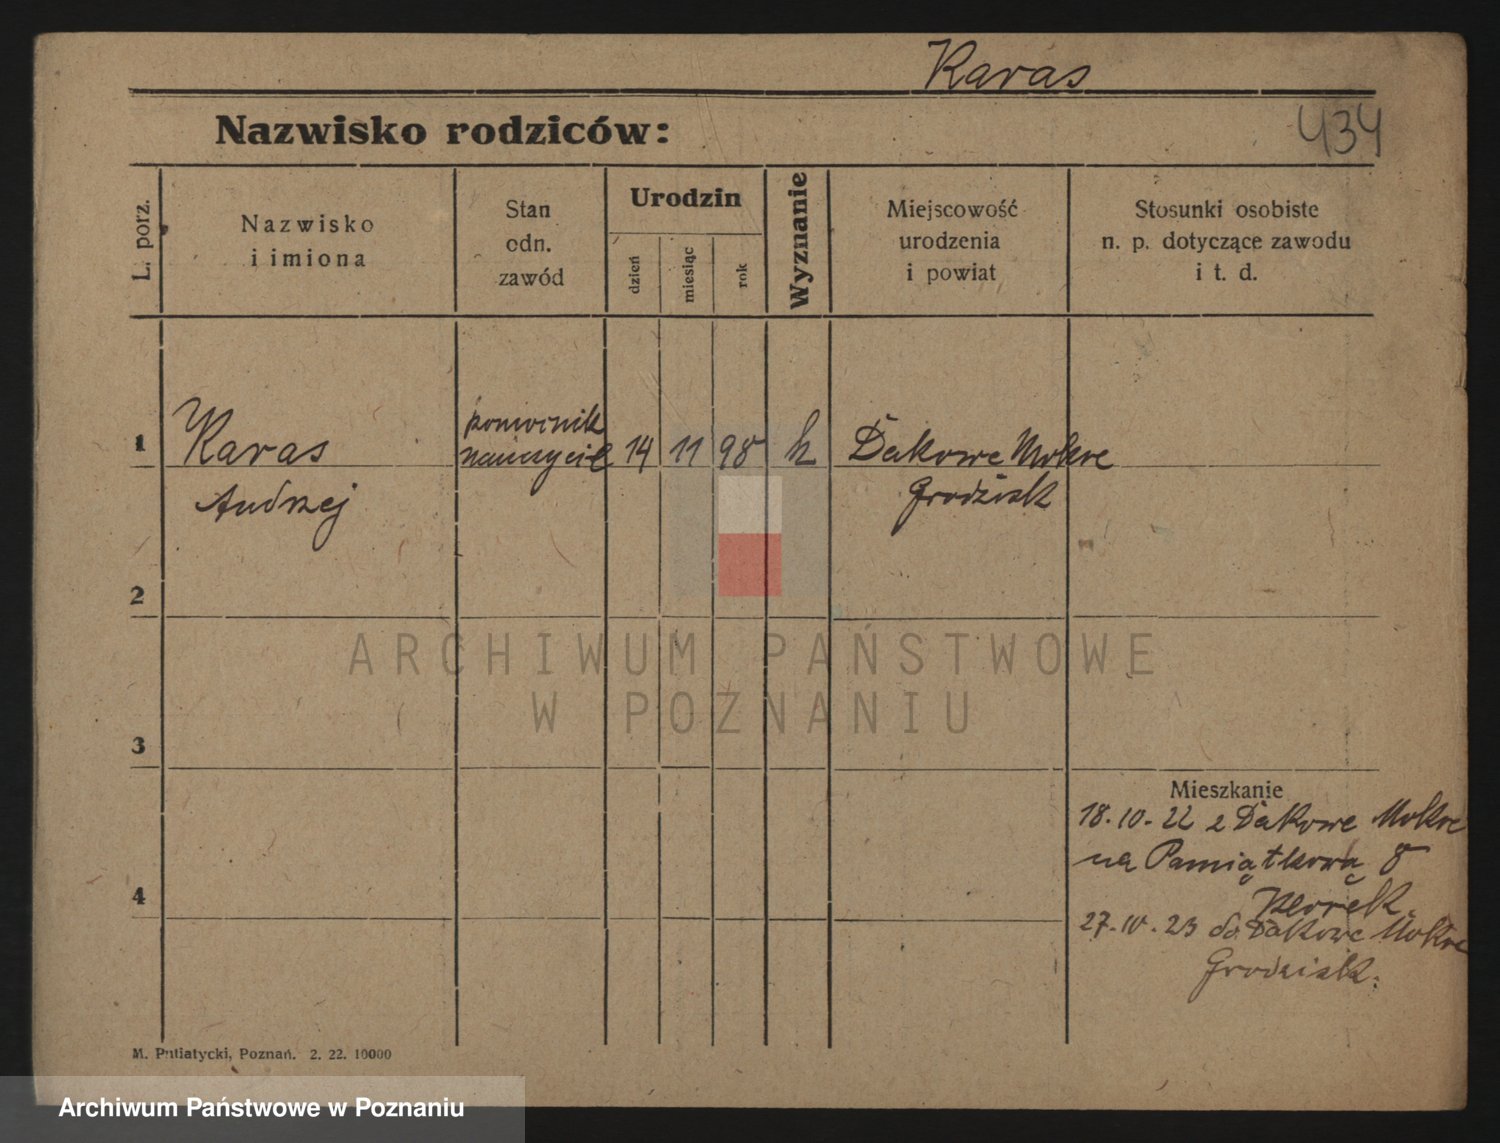 Karas
434
Nazwisko rodziców:
L. porz.
Nazwisko
i imiona
Stan
odn.
zawód
Urodzin
dzień
miesiąc
rok
Wyznanie
Miejscowość
urodzenia
i powiat
Stosunki osobiste
n. p. dotyczące zawodu
i t. d.
1
Karas
Andrzej
pomocnik
nauczyciel
14
11
98
k
Dakowe Mokre
Grodzisk
2
3
4
Mieszkanie
18.10.22 z Dakowe Mokre
na Pamiątkową 8
27.10.23 do Dakowe Mokre
Grodzisk.
M. Putiatycki, Poznań. 2. 22. 10000
ARCHIWUM PAŃSTWOWE
W POZNANIU
Archiwum Państwowe w Poznaniu